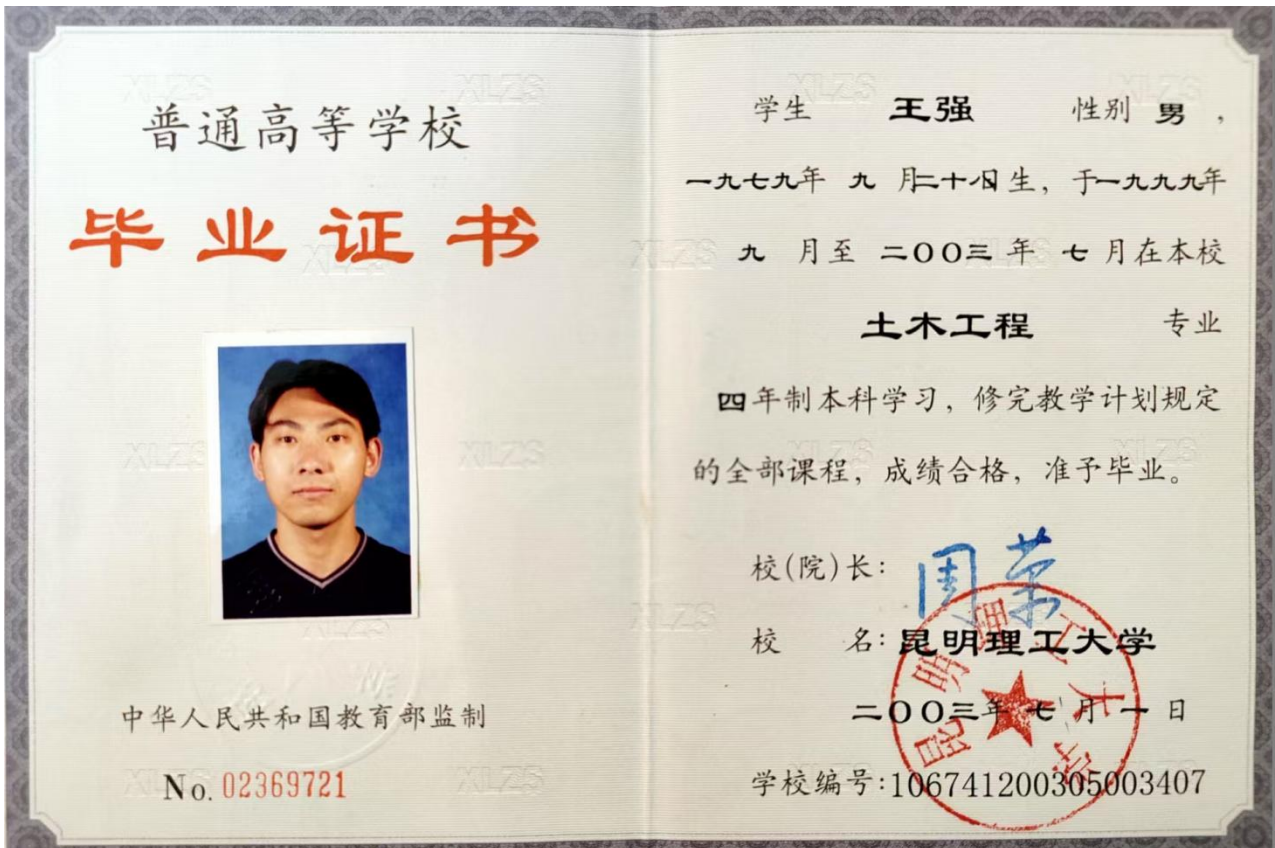 普通高等学校
毕业证书
中华人民共和国教育部监制
No. 02369721
学生 王强 性别 男，
一九七九年 九 月二十八日生，于一九九九年
九 月至 二〇〇三 年 七 月在本校
土木工程 专业
四年制本科学习，修完教学计划规定
的全部课程，成绩合格，准予毕业。
校(院)长：周荣
校 名：昆明理工大学
二〇〇三年 七 月 一 日
学校编号：106741200305003407
昆明理工大学
XLZS